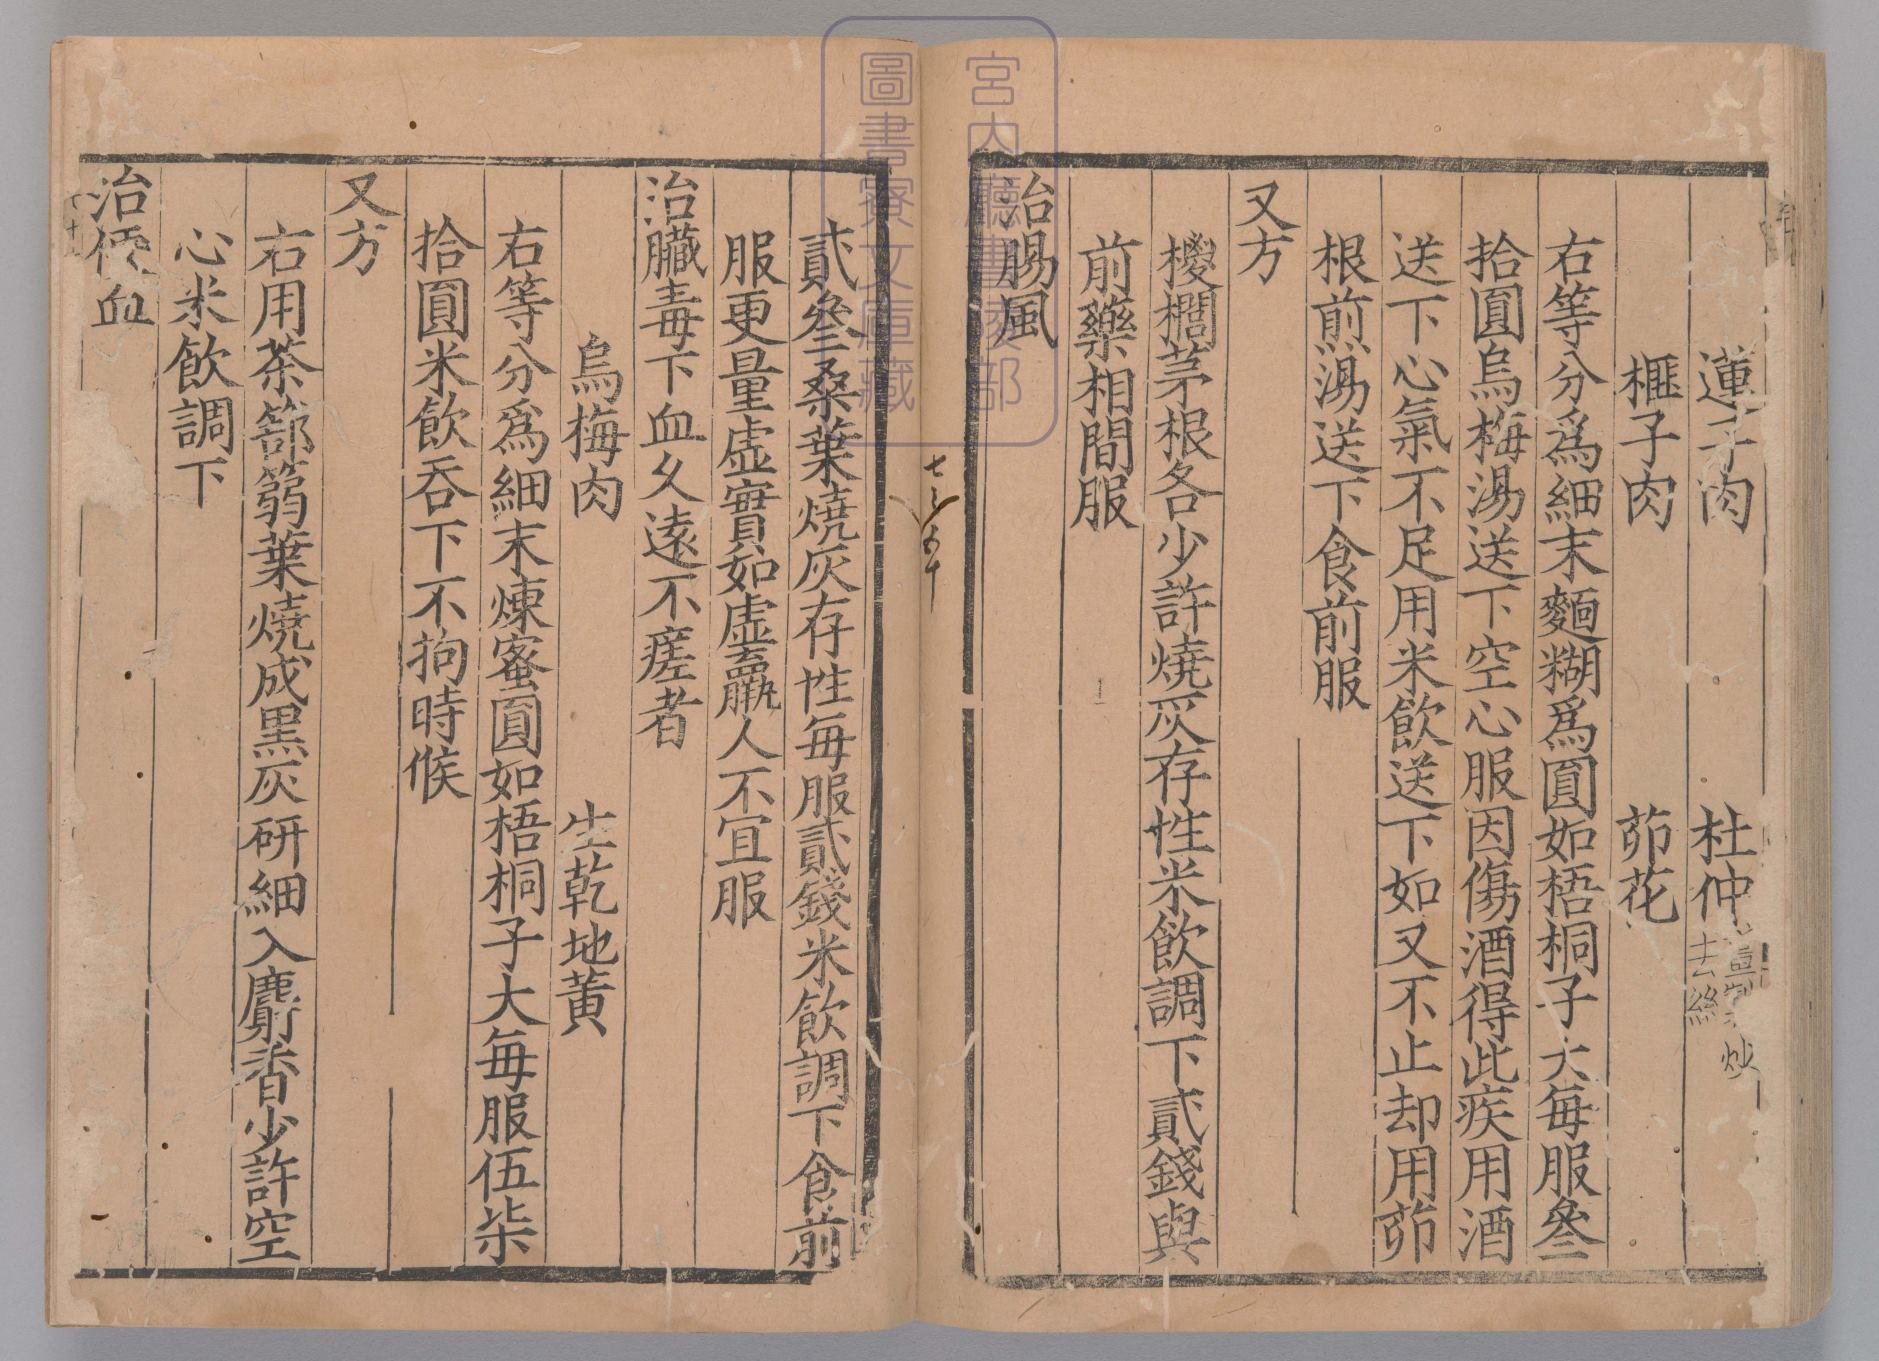 蓮子肉 杜仲 去絲 炒
榧子肉 茆花
右等分爲細末麵糊爲圓如梧桐子大每服叁
拾圓烏梅湯送下空心服因傷酒得此疾用酒
送下心氣不足用米飲送下如又不止却用茆
根煎湯送下食前服
又方
椶櫚茅根各少許燒灰存性米飲調下貳錢與
前藥相間服
治腸風
貳叁桑葉燒灰存性每服貳錢米飲調下食前
服更量虛實如虛羸人不宜服
治臟毒下血久遠不瘥者
烏梅肉 生乾地黄
右等分爲細末煉蜜圓如梧桐子大每服伍柒
拾圓米飲吞下不拘時候
又方
右用茶篰篛葉燒成黑灰研細入麝香少許空
心米飲調下
治便血
宮内廳書陵部
圖書寮文庫藏